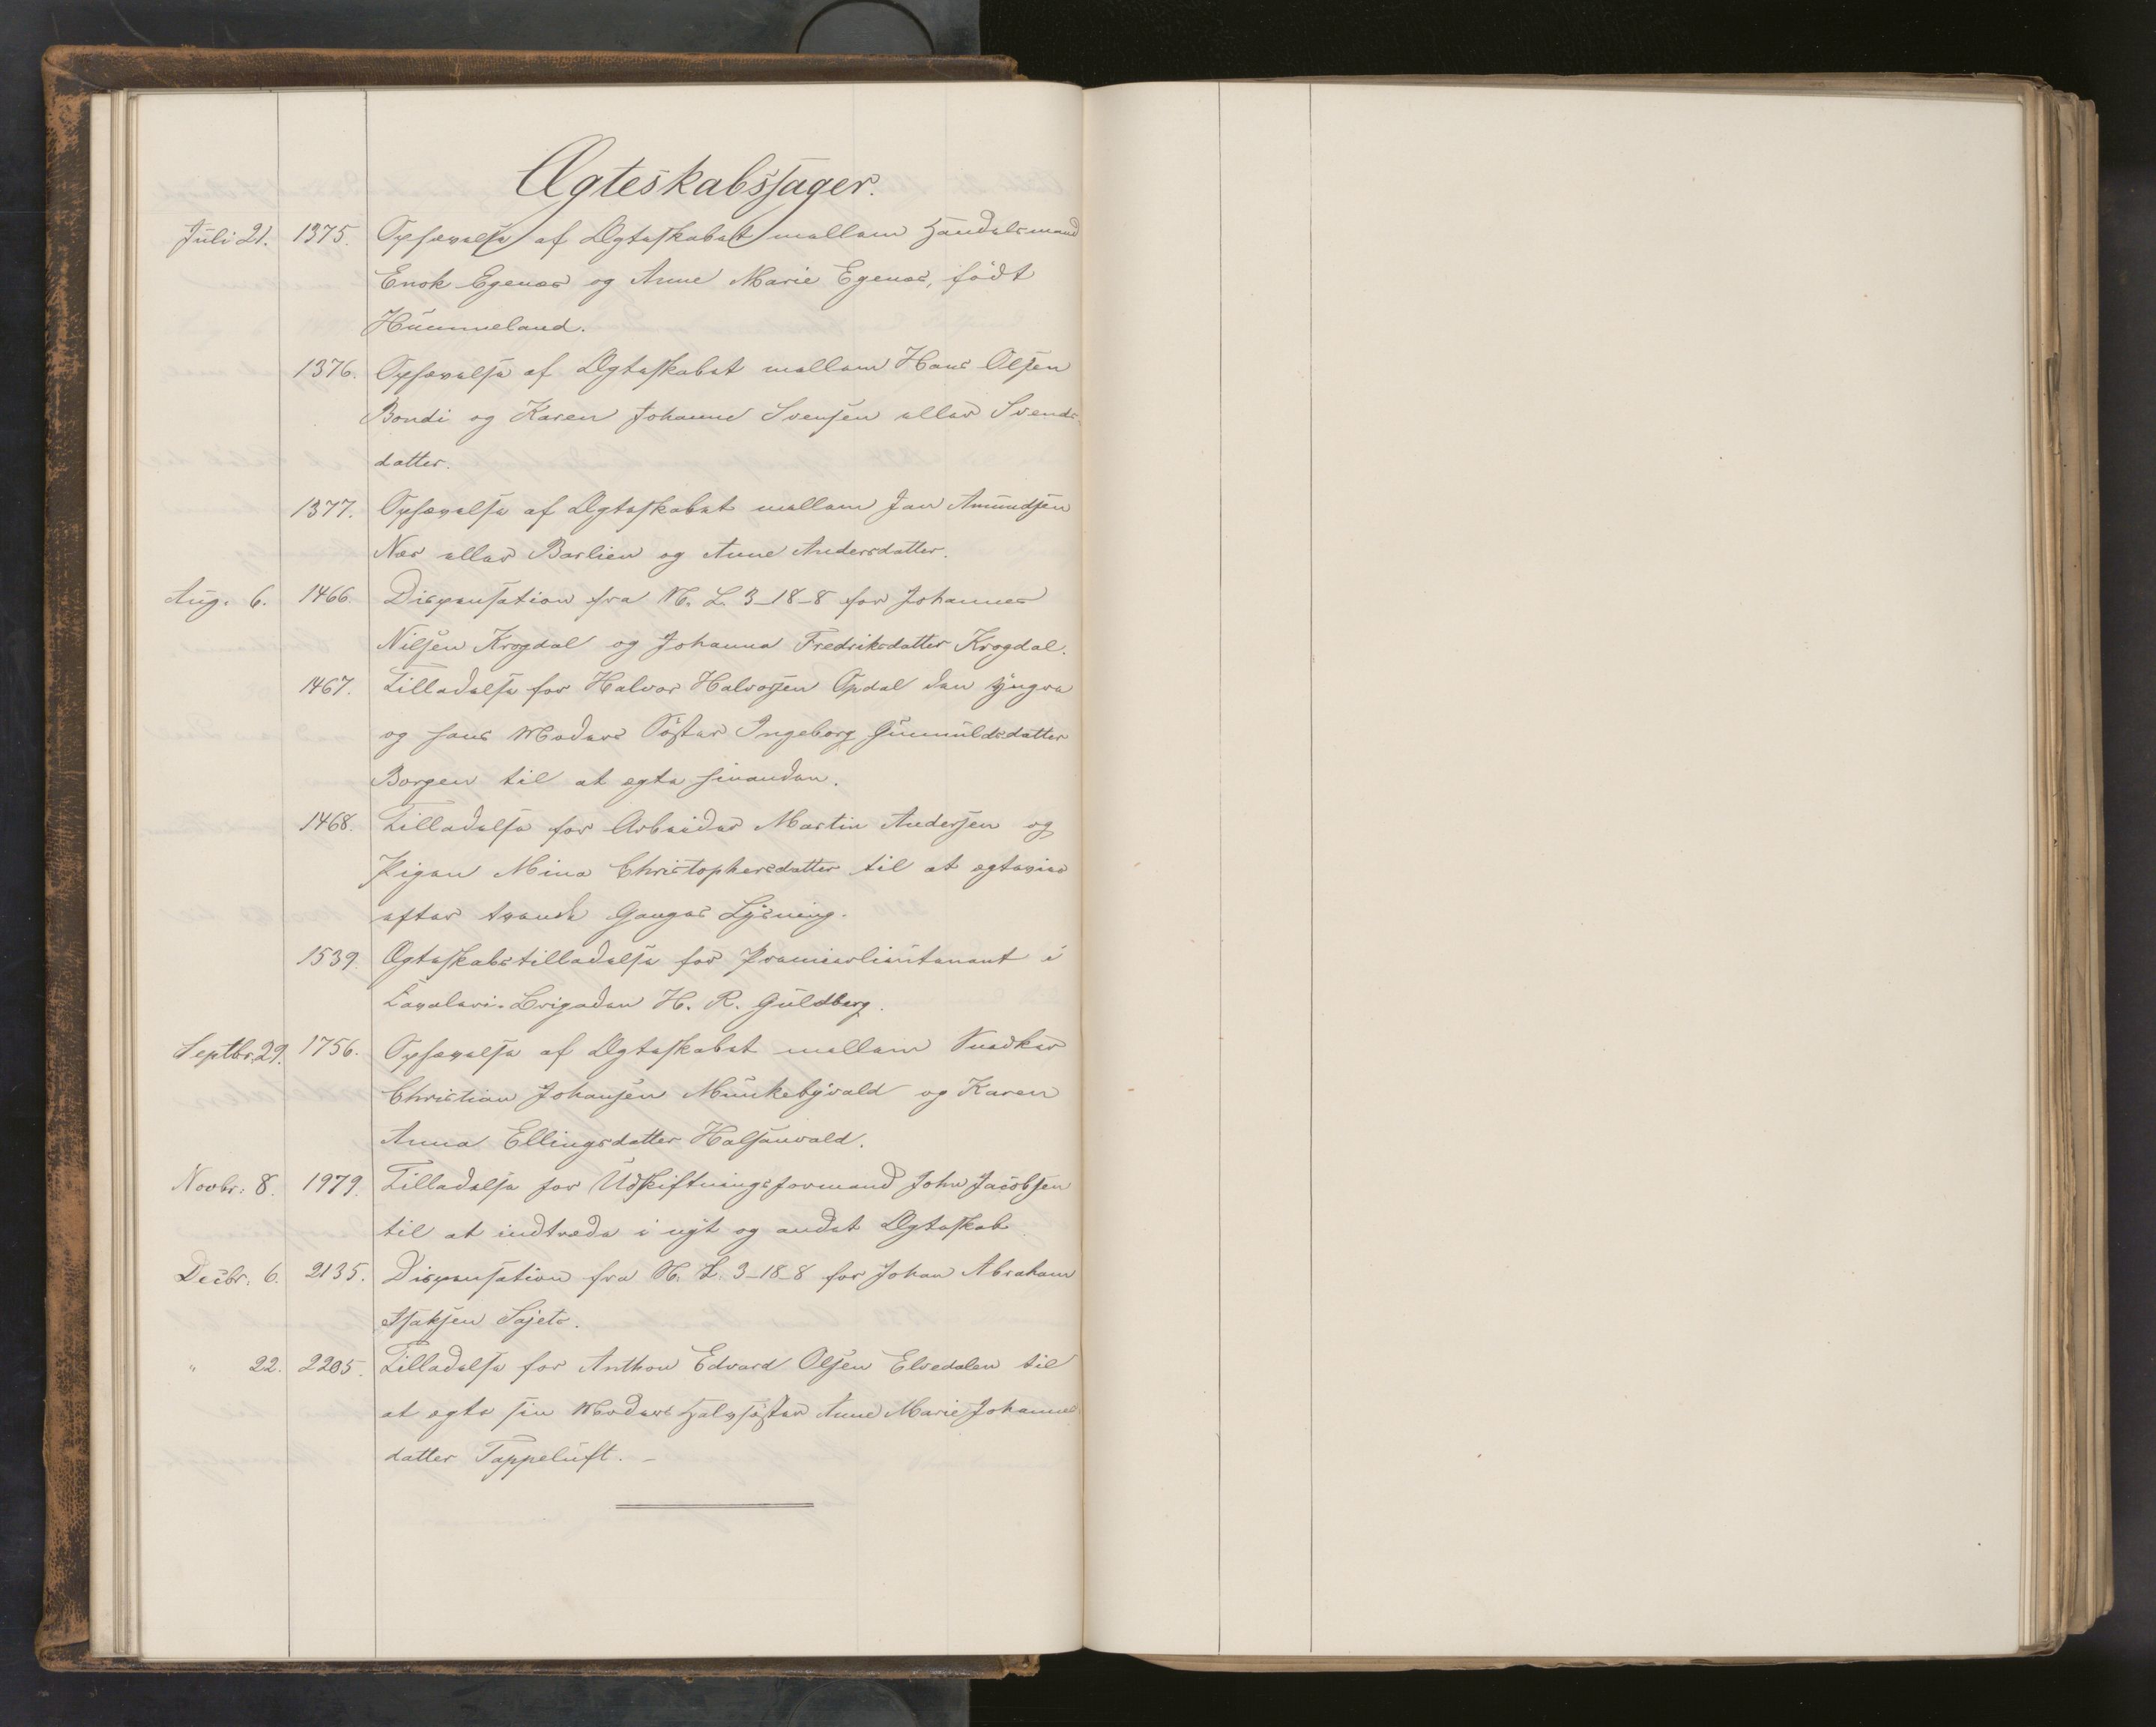 Ægteskabssager.
Juli 21. 1375. Ophævelse af Ægteskabet mellem Handelsmand
Enok Egenæs og Anne Marie Egenæs, født
Hummeland.
1376. Ophævelse af Ægteskabet mellem Hans Olsen
Bondi og Karen Johanne Svensen eller Svends-
datter.
1377. Ophævelse af Ægteskabet mellem Jan Amundsen
Næs eller Barlien og Anne Andersdatter.
Aug. 6. 1466. Dispensation fra N. L. 3-18-8 for Johannes
Nilsen Krogdal og Johanna Fredriksdatter Krogdal.
1467. Tilladelse for Halvor Halvorsen Opdal den yngre
og hans Moders Søster Ingeborg Gunnuldsdatter
Borgen til at ægte hinanden.
1468. Tilladelse for Arbeider Martin Andersen og
Pigen Mina Christophersdatter til at ægtevies
efter trende Ganges Lysning.
1539. Ægteskabstilladelse for Premierlieutenant i
Kavaleri-Brigaden H. R. Guldberg.
Septbr. 29. 1756. Ophævelse af Ægteskabet mellem Snedker
Christian Johansen Munkebyvald og Karen
Anna Ellingsdatter Halsanvald.
Novbr. 8. 1979. Tilladelse for Udskiftningsformand John Jacobsen
til at indtræde i nyt og andet Ægteskab
Decbr. 6. 2135. Dispensation fra N. L. 3-18-8 for Johan Abraham
Isaksen Sajets.
" 22. 2205. Tilladelse for Anthon Edvard Olsen Elvedalen til
at ægte sin Moders Halvsøster Anne Marie Johanne
datter Tappeluft. –